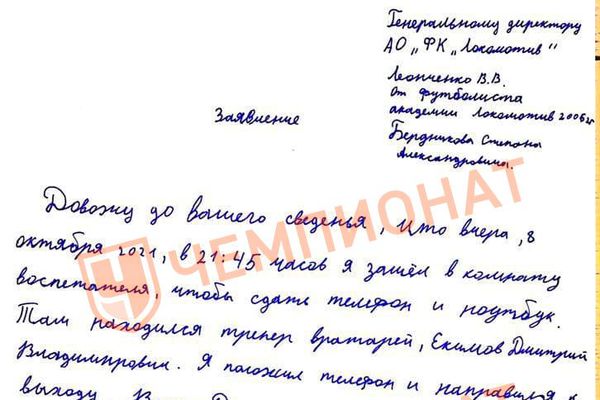 Генеральному директору
АО „ФК „Локомотив"
Леонченко В.В.
от футболиста
академии Локомотив 2006г
Бердникова Степана
Александровича.
Заявление
Довожу до вашего сведенья, что вчера, 8
октября 2021, в 21:45 часов я зашёл в комнату
воспетателя, чтобы сдать телефон и ноутбук.
Там находился тренер вратарей, Екимов Дмитрий
Владимирович. Я положил телефон и направился к
выходу
ЧЕМПИОНАТ